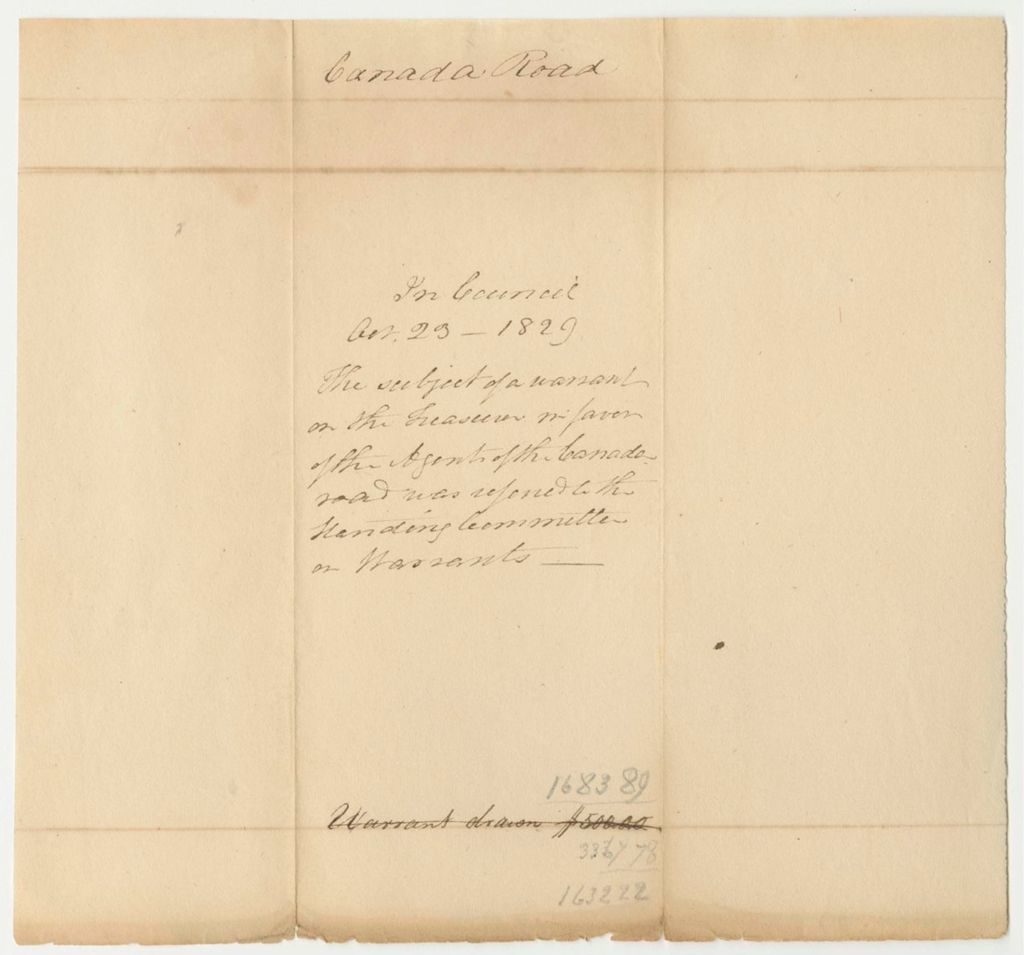 Canada Road
In Council
Oct. 23 – 1829
The subject of a warrant
on the Treasurer in favor
of the Agents of the Canada
road was referred to the
Standing Committee
on Warrants —
1683 89
Warrant drawn $5000.00
3367 78
1632 22